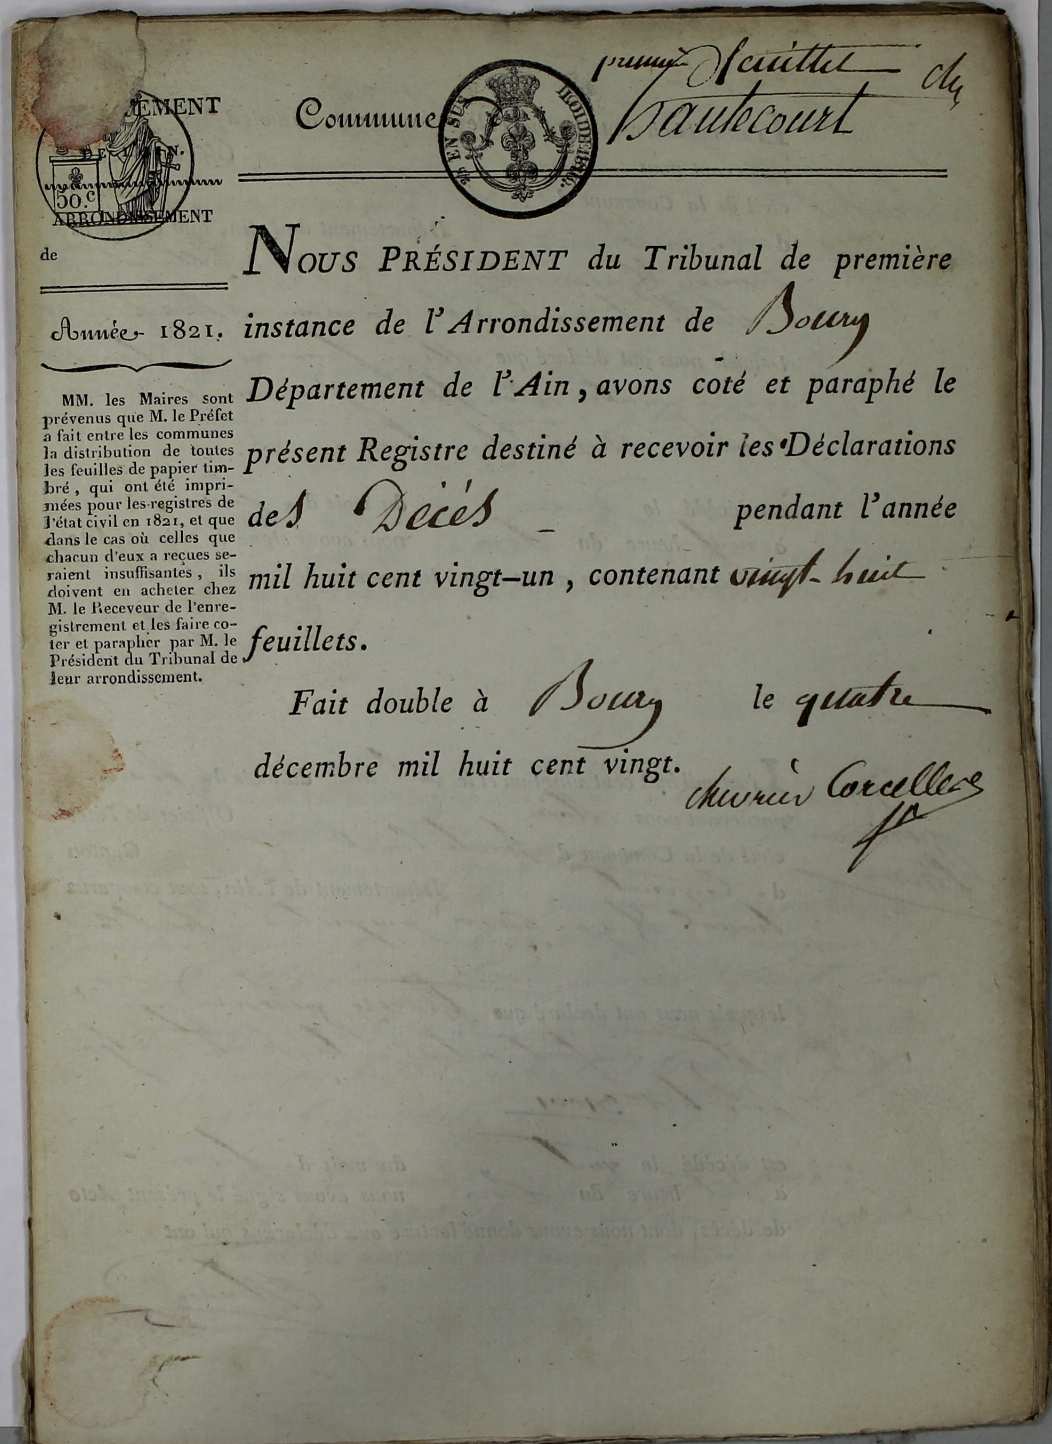 premier feuillet
du
DÉPARTEMENT
DE L'AIN.
50.c
ARRONDISSEMENT
de
Année 1821.
MM. les Maires sont
prévenus que M. le Préfet
a fait entre les communes
la distribution de toutes
les feuilles de papier tim-
bré, qui ont été impri-
mées pour les registres de
l'état civil en 1821, et que
dans le cas où celles que
chacun d'eux a reçues se-
raient insuffisantes, ils
doivent en acheter chez
M. le Receveur de l'enre-
gistrement et les faire co-
ter et parapher par M. le
Président du Tribunal de
leur arrondissement.
Commune
EN SUS
NOUS PRÉSIDENT du Tribunal de première
instance de l'Arrondissement de Bourg
Département de l'Ain, avons coté et paraphé le
présent Registre destiné à recevoir les Déclarations
des Décés pendant l'année
mil huit cent vingt-un, contenant vingt-huit
feuillets.
Fait double à Bourg le quatre
décembre mil huit cent vingt.
chevrier Corcelles